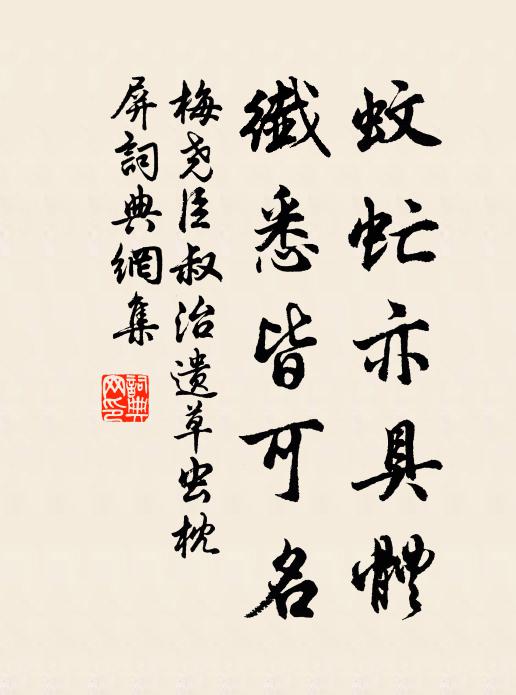 蚊虻亦具體
纖悉皆可名
梅尧臣叔治遺草虫枕
屏詞典網集
詞典网印